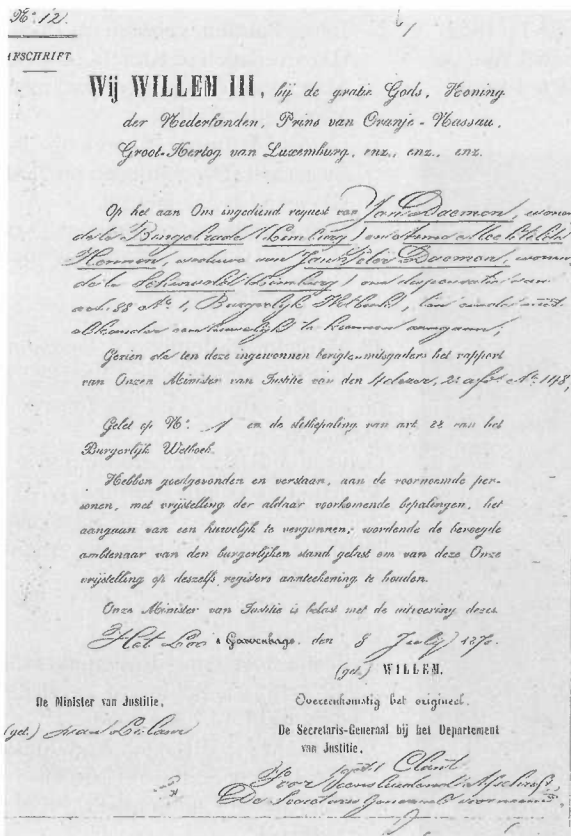 No. 12.
AFSCHRIFT
Wij WILLEM III, bij de gratie Gods, Koning
der Nederlanden, Prins van Oranje-Nassau,
Groot-Hertog van Luxemburg, enz., enz., enz.
Op het aan Ons ingediend request van Jan Daemen,
de te Bingelrade (Limburg) en
Hennen, weduwe van Jan Peter Daemen,
de te Schinveld (Limburg) om dispensatie van
art. 88 No. 1, Burgerlijk Wetboek, ten einde met
elkander een huwelijk te kunnen aangaan;
Gezien de ten deze ingewonnen berigten, mitsgaders het rapport
van Onzen Minister van Justitie van den 4 dezer, 2e afd. No. 148,
Gelet op No. 1 en de slotbepaling van art. 88 van het
Burgerlijk Wetboek.
Hebben goedgevonden en verstaan, aan de voornoemde per-
sonen, met vrijstelling der aldaar voorkomende bepalingen, het
aangaan van een huwelijk te vergunnen, wordende de bevoegde
ambtenaar van den burgerlijken stand gelast om van deze Onze
vrijstelling op deszelfs registers aanteekening te houden.
Onze Minister van Justitie is belast met de uitvoering dezes.
Het Loo 's Gravenhage, den 8 July 1870.
(get.) WILLEM.
De Minister van Justitie,
(get.) van Lilaar
Overeenkomstig het origineel.
De Secretaris-Generaal bij het Departement
van Justitie.
Voor
De Secretaris Generaal voornoemd